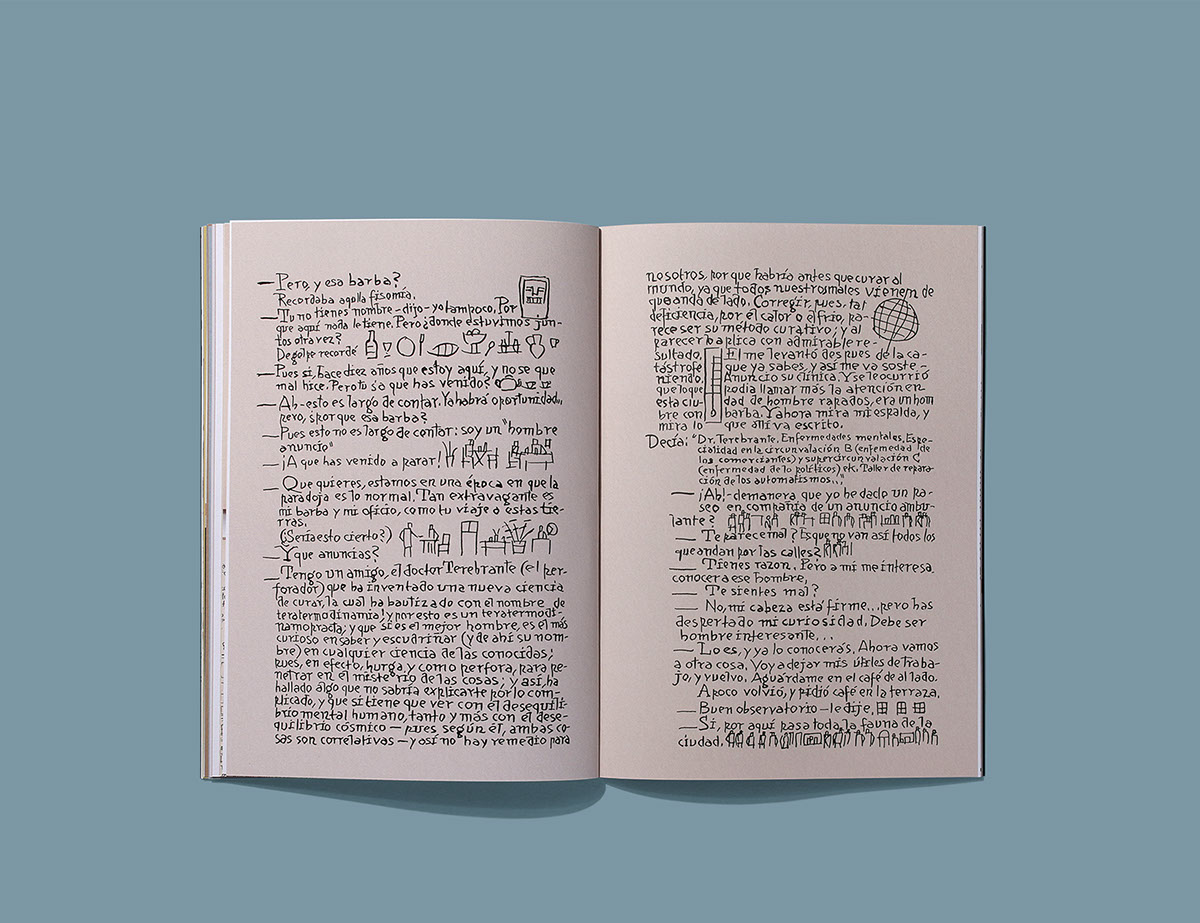 — Pero, y esa barba?
Recordaba aqella fisomía.
— Tu no tienes nombre – dijo – yo tampoco. Por
que aquí nada le tiene. Pero ¿donde estuvimos jun-
tos otra vez?
De golpe recordé
— Pues si, hace diez años que estoy aquí, y no se que
mal hice. Pero tu ¿a que has venido?
— Ah – esto es largo de contar. Ya habrá oportunidad,,
pero, ¿por que esa barba?
— Pues esto no es largo de contar: soy un "hombre
anuncio"
— ¡A que has venido a parar!
— Que quieres, estamos en una época en que la
paradoja es lo normal. Tan extravagante es
mi barba y mi oficio, como tu viaje a estas tie-
rras.
(¿Sería esto cierto?)
— Y que anuncias?
— Tengo un amigo, el doctor Terebrante (el per-
forador) que ha inventado una nueva ciencia
de curar, la cual ha bautizado con el nombre de
teratermodinamia! y por esto es un teratermodi-
namopracta; y que si es el mejor hombre, es el más
curioso en saber y escudriñar (y de ahí su nom-
bre) en cualquier ciencia de las conocidas;
pues, en efecto, hurga, y como perfora, para pe-
netrar en el misterio de las cosas; y así, ha
hallado algo que no sabría explicarte por lo com-
plicado, y que si tiene que ver con el desequili-
brio mental humano, tanto y más con el dese-
quilibrio cósmico — pues según él, ambas co-
sas son correlativas — y así no hay remedio para
nosotros, por que habría antes que curar al
mundo, ya que todos nuestros males vienen de
que anda de lado. Corregir, pues, tal
deficiencia, por el calor o el frio, pa-
rece ser su método curativo; y al
parecer la plica con admirable re-
sultado. El me levantó despues de la ca-
tástrofe que ya sabes, y así me va soste-
niendo. Anuncio su clínica. Y se le ocurrió
que lo que podía llamar más la atención en
esta ciu- dad de hombre rapados, era un hom
bre con barba. Y ahora mira mi espalda, y
mira lo que allí va escrito.
Decía: "Dr. Terebrante. Enfermedades mentales. Espe-
cialidad en la circunvalación B (enfermedad de
los comerciantes) y supercircunvalación C
(enfermedad de lo políticos) etc. Taller de repara-
ción de los automatismos..,"
— ¡Ah! – demanera que yo he dado un pa-
seo en compañía de un anuncio ambu-
lante?
— Te parece mal? Es que no van así todos los
que andan por las calles?
— Tienes razon. Pero a mi me interesa
conocer a ese hombre,
— Te sientes mal?
— No, mi cabeza está firme... pero has
despertado mi curiosidad. Debe ser
hombre interesante...
— Lo es, y ya lo conocerás. Ahora vamos
a otra cosa. Voy a dejar mis útiles de traba-
jo, y vuelvo. Aguárdame en el café de al lado.
A poco volvió, y pidió café en la terraza,
— Buen observatorio – le dije,
— Si, por aquí pasa toda la fauna de la
ciudad.